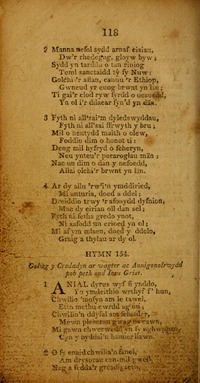 118
2 Manna nefol sydd arnaf eisiau,
Dw'r rhedegog, gloyw byw;
Sydd yn tarddu o tan riniog
Teml sanctaidd tŷ fy Nuw:
Golchi'r aflan, cannu'r Ethiop,
Gwneud yr euog brwnt yn lân;
Ti gai'r clod ryw fyrdd o oesoedd,
Yn ol i'r ddaear fyn'd yn dân.
3 Fyth ni all'swn dyledswyddau,
Fyth ni all'sai ffrwyth y bru;
Mil o
maitd o olew,
Foddio dim o honot ti:
Deng mil hyfryd o
Neu ynteu'r peraroglau
Nac un dim o dan y nefoedd,
Allai olchi'r brwnt yn lân.
4 Ar dy allu 'rwi'n ymddiried,
Mi anturia, doed a ddel;
Dreiddio trwy 'r afonydd dyfnion,
Mae dy eiriau oll dan sel;
Fyth ni fetha gredo ynot,
Ni safodd un erioed yn ol;
Mi af ym mlaen, doed y ddelo,
Graig a thylau ar dy ol.
HYMN 154.
Golwg y Credadyn ar wagter ac Annigonolrwydd
pob peth ond Iesu Grist.
1 ANIAL dyrus wyf fi ynddo,
Yn ymdeithio wrthyf f' hun,
Chwilio 'nofyn am le tawel,
Etto methu cwrdd ag un;
Chwilio'n ddyfal am
Mewn pleserau gwag
Mi gawn chwerwedd yn fy
Cyn y byddai'n hanner llawn.
2 O fy enaid chwilia'n fanol,
Am drysorau
Nag a feddo'r greadigaeth,